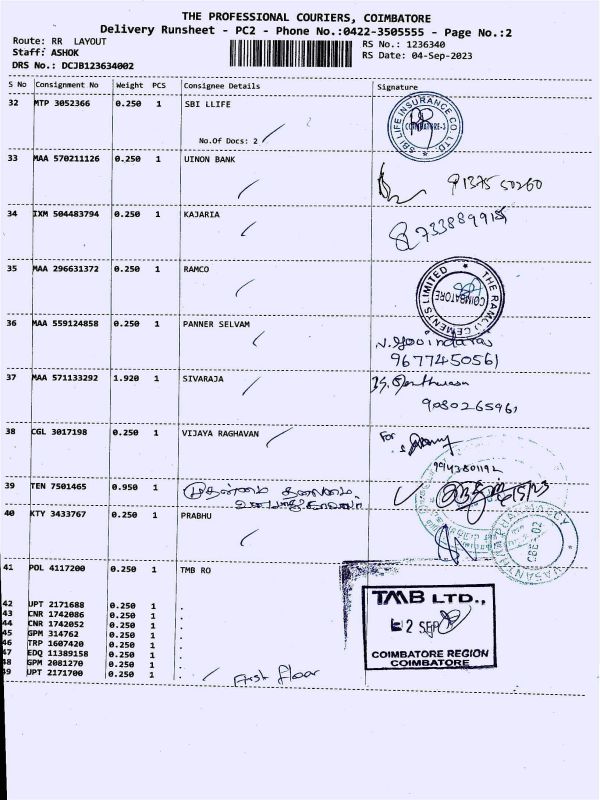 THE PROFESSIONAL COURIERS, COIMBATORE
Delivery Runsheet - PC2 - Phone No.:0422-3505555 - Page No.:2
Route: RR LAYOUT
RS No.: 1236340
Staff: ASHOK
RS Date: 04-Sep-2023
DRS No.: DCJB123634002
S No Consignment No Weight PCS Consignee Details Signature
32 MTP 3052366 0.250 1 SBI LLIFE
No.Of Docs: 2
SBI LIFE INSURANCE CO. LTD.
COIMBATORE-3
33 MAA 570211126 0.250 1 UINON BANK
91375 50260
34 IXM 504483794 0.250 1 KAJARIA
35 MAA 296631372 0.250 1 RAMCO
THE RAMCO CEMENTS LIMITED
COIMBATORE
36 MAA 559124858 0.250 1 PANNER SELVAM
N. Govindaraj
9677450561
37 MAA 571133292 1.920 1 SIVARAJA
9080265961
38 CGL 3017198 0.250 1 VIJAYA RAGHAVAN
For
9943801192
39 TEN 7501465 0.950 1 முதன்மை தலைமை
40 KTY 3433767 0.250 1 PRABHU
41 POL 4117200 0.250 1 TMB RO
TMB LTD.,
2 SEP
COIMBATORE REGION
COIMBATORE
42 UPT 2171688 0.250 1 .
43 CNR 1742086 0.250 1 .
44 CNR 1742052 0.250 1 .
45 GPM 314762 0.250 1 .
46 TRP 1607420 0.250 1 .
47 EDQ 11389158 0.250 1 .
48 GPM 2081270 0.250 1 .
49 UPT 2171700 0.250 1 .
First floor